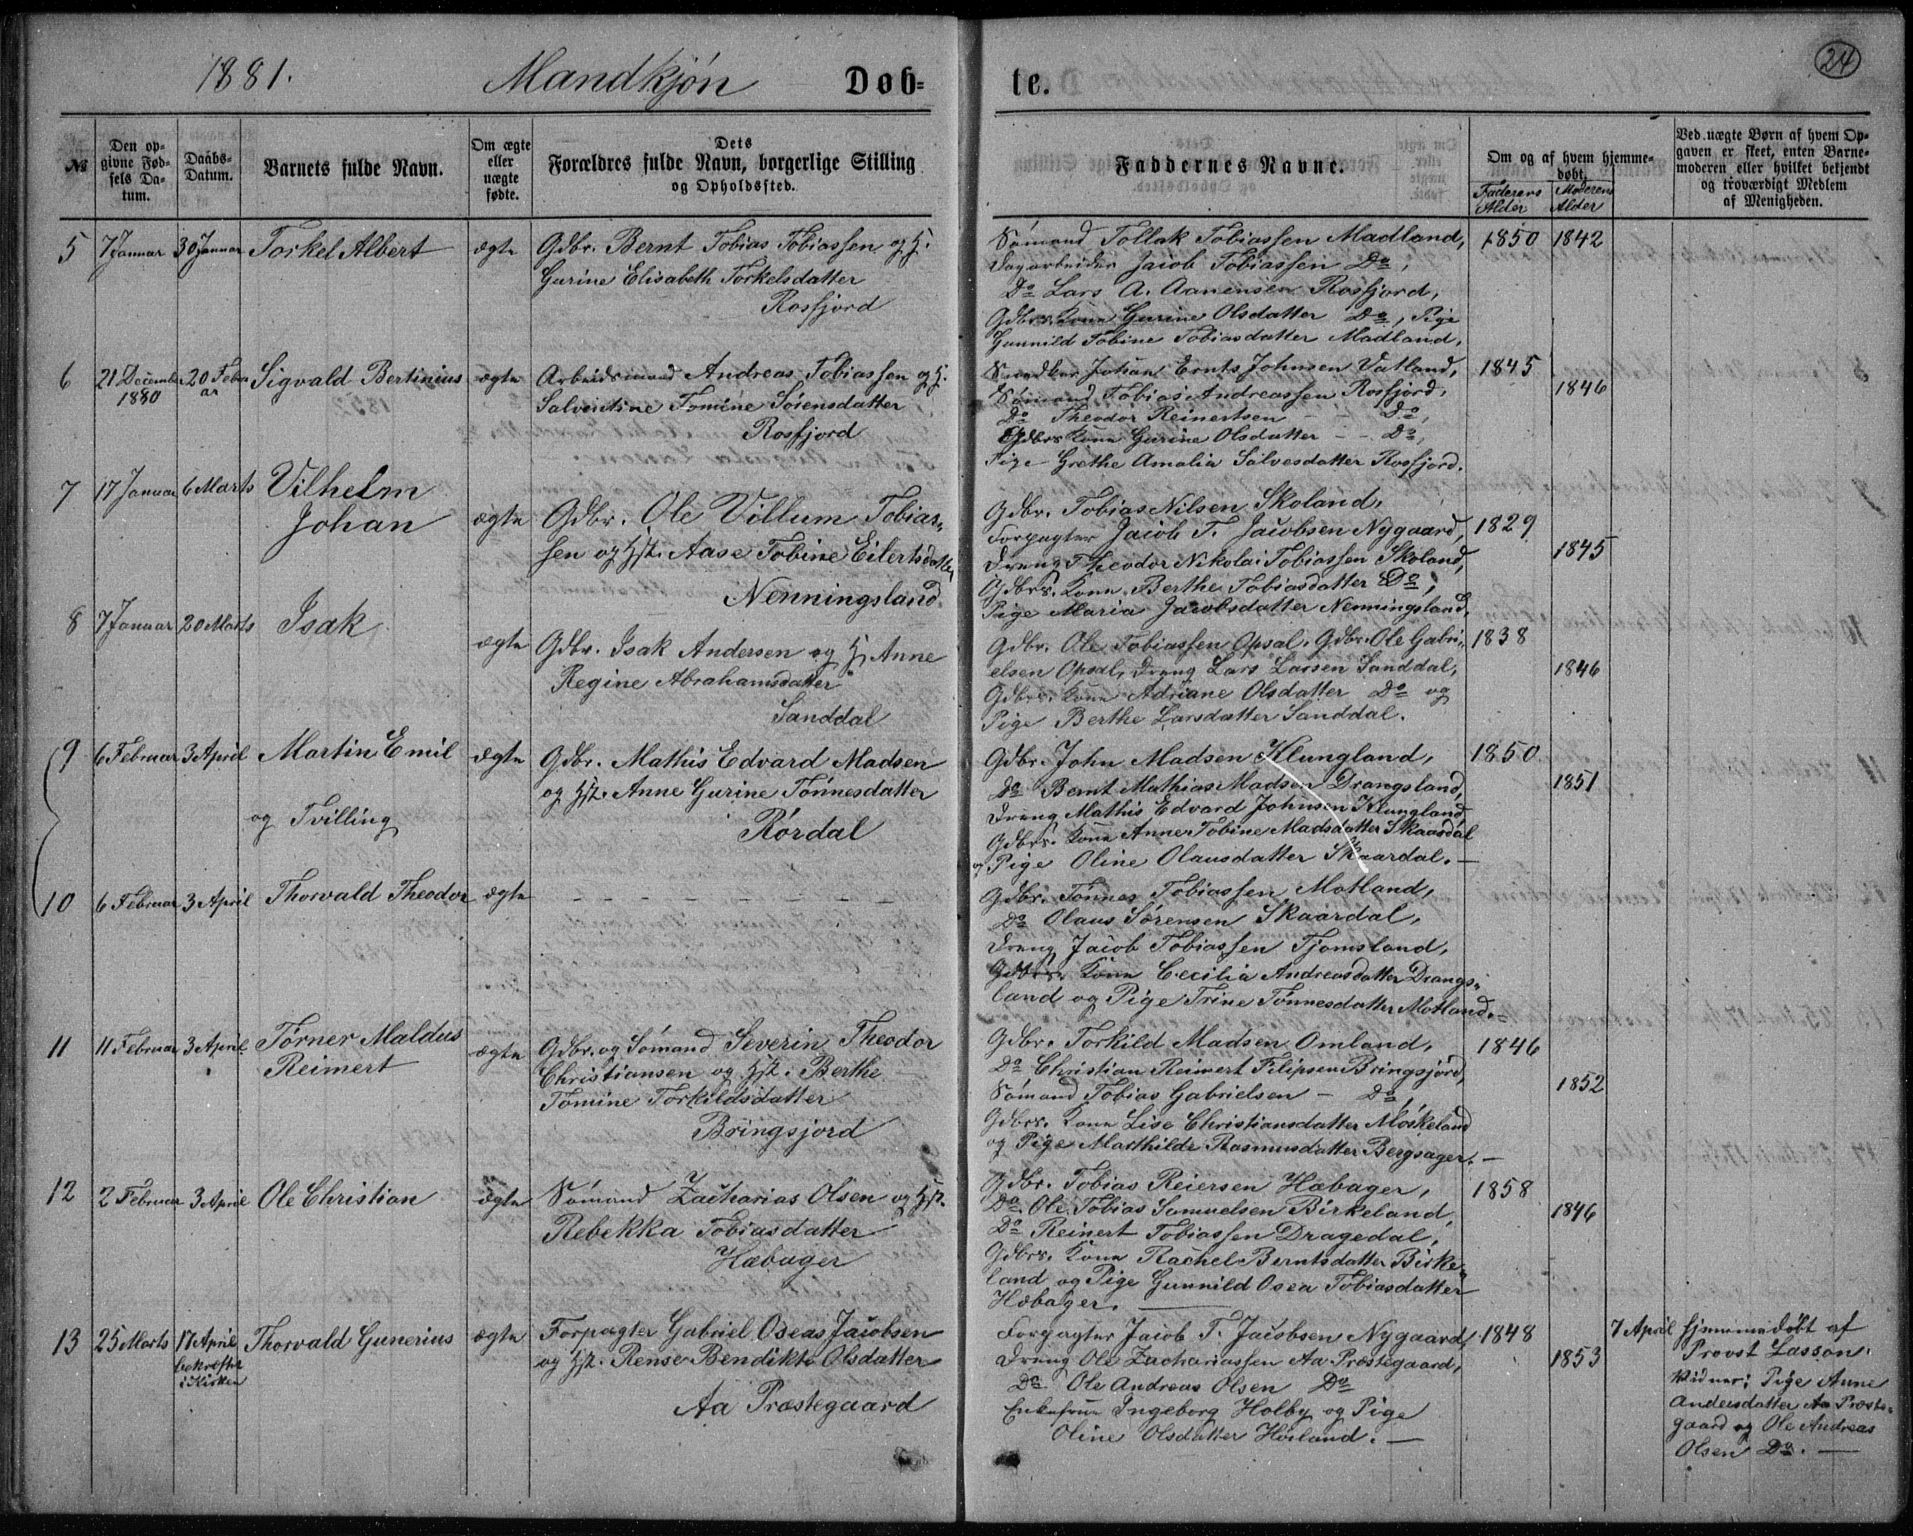 1881.
Mandkjøn
Døb=
te.
24
№
Den op-
givne Fød-
sels Da-
tum.
Daabs-
Datum.
Barnets fulde Navn.
Om ægte
eller
uægte
fødte.
Dets
Forældres fulde Navn, borgerlige Stilling
og Opholdssted.
Faddernes Navne.
Om og af hvem hjemme-
døbt.
Faderens
Alder
Moderens
Alder
Ved uægte Børn af hvem Op-
gaven er skeet, enten Barne-
moderen eller hvilket bekjendt
og troværdigt Medlem
af Menigheden.
5 7 Januar 30 Januar Torkel Albert ægte Gdbr. Bernt Tobias Tobiassen og H.
Gurine Elisabeth Torkelsdatter
Rosfjord
Sømand Tollak Tobiassen Madland, 1850 1842
Dagarbeider Jacob Tobiassen Do,
Do Lars A. Aanensen Rosfjord,
Gdbrs. Kone Gurine Olsdatter Do, Pige
Gunnild Tobine Tobiasdatter Madland.
6 21 December 20 Febru Sigvald Bertinius ægte Arbeidsmand Andreas Tobiassen og H.
1880 ar Salventine Tomine Sørensdatter
Rosfjord
Snedker Johan Ernts Johnsen Vatland, 1845
Sømand Tobias Andreassen Rosfjord, 1846
Do Theodor Reinertsen - Do,
Gdbrs Kone Gurine Olsdatter - - Do,
Pige Grethe Amalia Salvesdatter Rosfjord.
7 17 Januar 6 Marts Vilhelm
Johan ægte Gdbr. Ole Villum Tobias-
sen og Hst. Aase Tobine Eilertsdatter
Nenningsland.
Gdbr. Tobias Nilsen Skoland,
Forpagter Jacob T. Jacobsen Nygaard, 1829
Dreng Theodor Nikolai Tobiassen Skoland, 1845
Gdbrs. Kone Berthe Tobiasdatter Do,
Pige Maria Jacobsdatter Nenningsland.
8 7 Januar 20 Marts Isak
ægte Gdbr. Isak Andersen og H. Anne
Regine Abrahamsdatter
Sanddal
Gdbr. Ole Tobiassen Opsal, Gdbr. Ole Gabri- 1838
elsen Opsal, Dreng Lars Larsen Sanddal, 1846
Gdbrs. Kone Adriane Olsdatter Do og
Pige Berthe Larsdatter Sanddal.
9 6 Februar 3 April Martin Emil ægte Gdbr. Mathis Edvard Madsen
og Hst. Anne Gurine Tønnesdatter
og Tvilling
Rørdal
Gdbr. John Madsen Klungland, 1850
Do Bernt Mathias Madsen Drangsland, 1851
Dreng Mathis Edvard Johnsen Klungland
Gdbrs. Kone Anne Tobine Madsdatter Skaardal
og Pige Oline Olausdatter Skaardal. -
10 6 Februar 3 April Thorvald Theodor ægte - - - - - - -
Gdbr. Tønnes Tobiassen Motland,
Do Olaus Sørensen Skaardal,
Dreng Jacob Tobiassen Tjomsland,
Gdbrs. Kone Cecilia Andreasdatter Drangs-
land og Pige Trine Tønnesdatter Motland.-
11 11 Februar 3 April Tørner Maldus
Reimert ægte Gdbr. og Sømand Severin Theodor
Christiansen og Hst. Berthe
Tomine Torkildsdatter
Bringsjord
Gdbr. Torkild Madsen Omland, 1846
Do Christian Reimert Filipsen Bringsjord,
Sømand Tobias Gabrielsen - Do, 1852
Gdbrs. Kone Lise Christiansdatter Møskeland
og Pige Marthilde Rasmusdatter Bergsager.-
12 2 Februar 3 April Ole Christian ægte Sømand Zacharias Olsen og Hst.
Rebekka Tobiasdatter
Hæbager
Gdbr. Tobias Reiersen Hæbager, 1858
Do. Ole Tobias Samuelsen Birkeland, 1846
Do Reinert Tobiassen Dragedal,
Gdbrs. Kone Rachel Berntsdatter Birke-
land og Pige Gunnild Osea Tobiasdatter
Hæbager.
13 25 Marts 17 April Thorvald Gunerius ægte Forpagter Gabriel Oseas Jacobsen
bekræftet
i Kirken
og Hst. Rense Bendikte Olsdatter
Aa Præstegaard
Forpagter Jacob T. Jacobsen Nygaard, 1848
Dreng Ole Zachariassen Aa Præstegaard, 1853
Do Ole Andreas Olsen Do
Enkefrue Ingeborg Holby og Pige
Oline Olsdatter Høiland. -
7 April Hjemmedøbt af
Provst Lassen.
Vidner: Pige Anne
Andersdatter Aa Præste-
gaard og Ole Andreas
Olsen Do. -